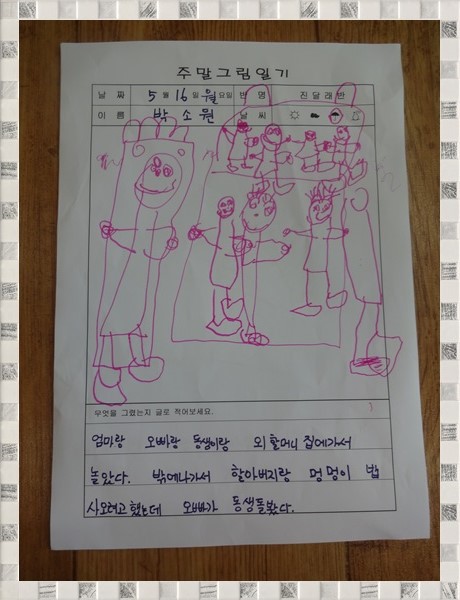 주말그림일기
날 짜 5 월 16 일 월 요일 반 명 진달래반
이 름 박 소 원 날 씨
무엇을 그렸는지 글로 적어보세요.
엄마랑 오빠랑 동생이랑 외 할머니 집에가서
놀았다. 밖에나가서 할아버지랑 멍멍이 밥
사오려고 했는데 오빠가 동생돌봤다.